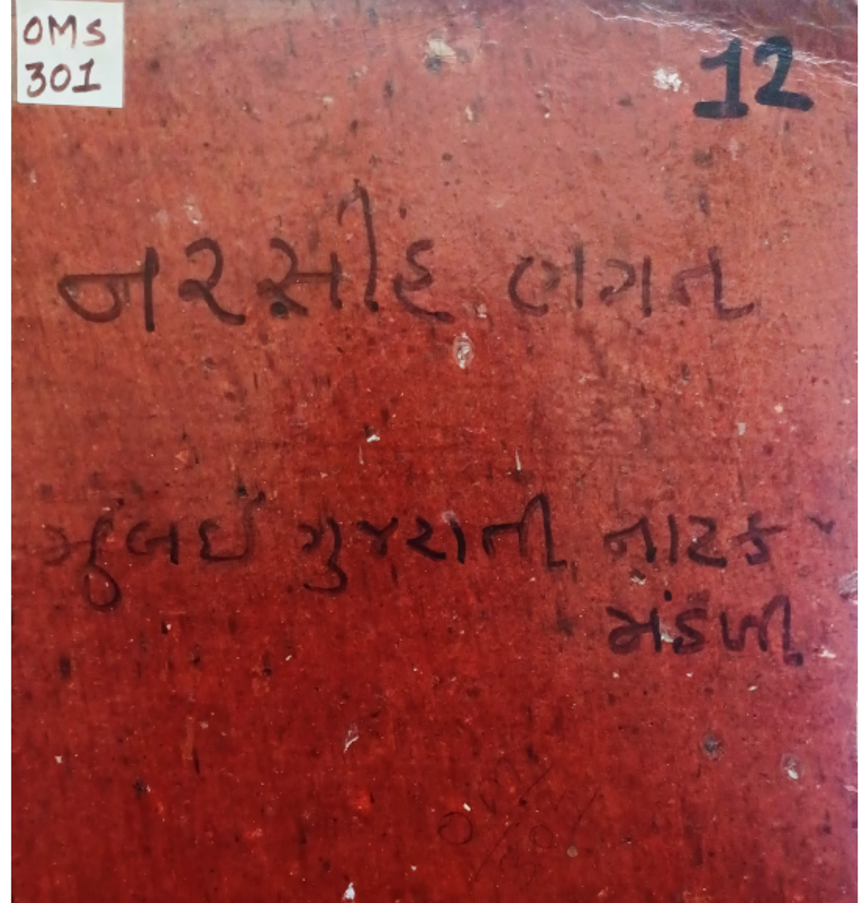 OMS
301
12
નરસીંહ ભગત
મુંબઈ ગુજરાતી નાટક
મંડળી
OMS/
301